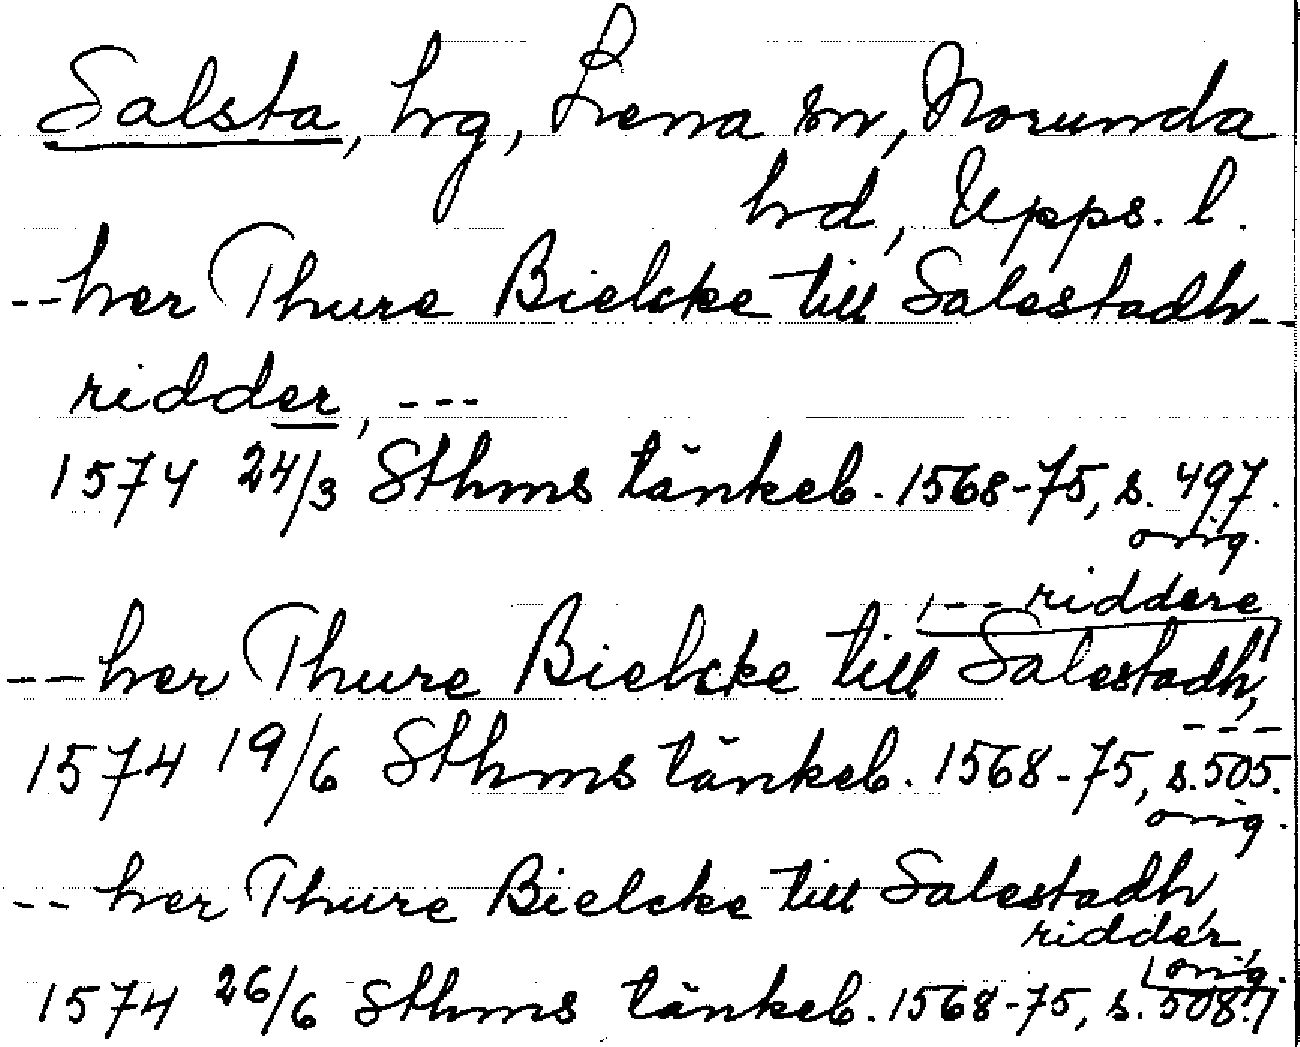 Salsta, hrg, Lena sn, Norunda
hrd, Upps. l.
--her Thure Bielcke till Salestadh--
ridder, ---
1574 24/3 Sthms tänkeb. 1568-75, s. 497.
orig.
, --- riddere
--her Thure Bielcke till Salestadh,
---
1574 19/6 Sthms tänkeb. 1568-75, s. 505.
orig.
-- her Thure Bielcke till Salestadh,
ridder,
orig.
1574 26/6 Sthms tänkeb. 1568-75, s. 508.